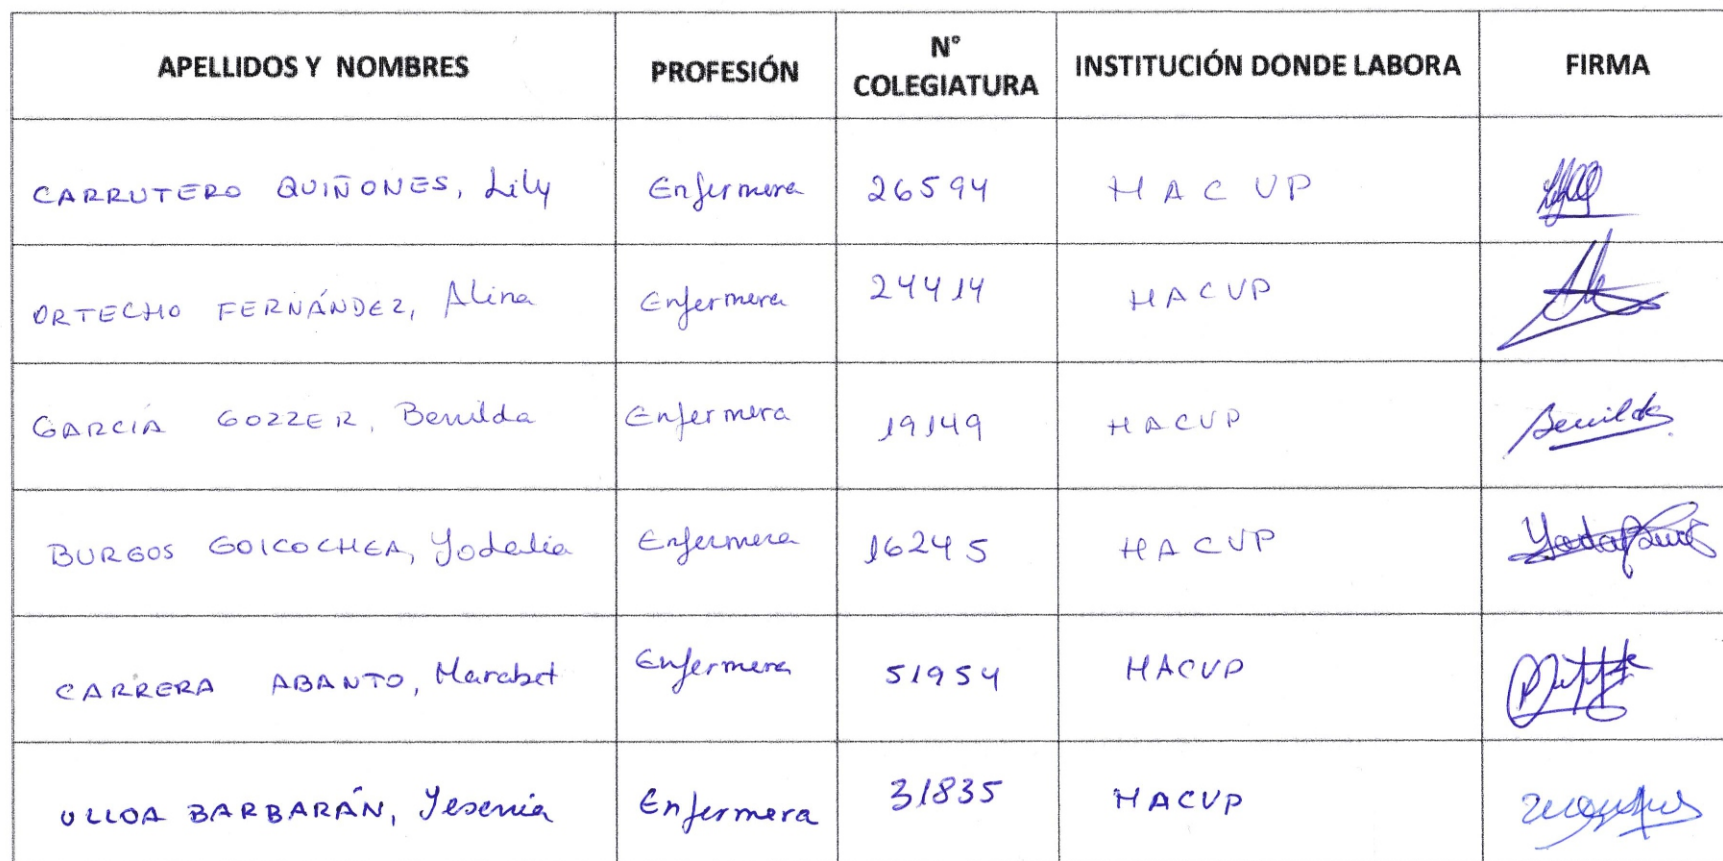 APELLIDOS Y NOMBRES PROFESIÓN N° COLEGIATURA INSTITUCIÓN DONDE LABORA FIRMA
CARRUTERO QUIÑONES, Lily Enfermera 26594 HACVP
ORTECHO FERNÁNDEZ, Alina Enfermera 24414 HACVP
GARCÍA GOZZER, Benilda Enfermera 19149 HACVP Benilda
BURGOS GOICOCHEA, Yodalia Enfermera 16245 HACVP
CARRERA ABANTO, Marabet Enfermera 51954 HACVP
ULLOA BARBARÁN, Yesenia Enfermera 31835 HACVP